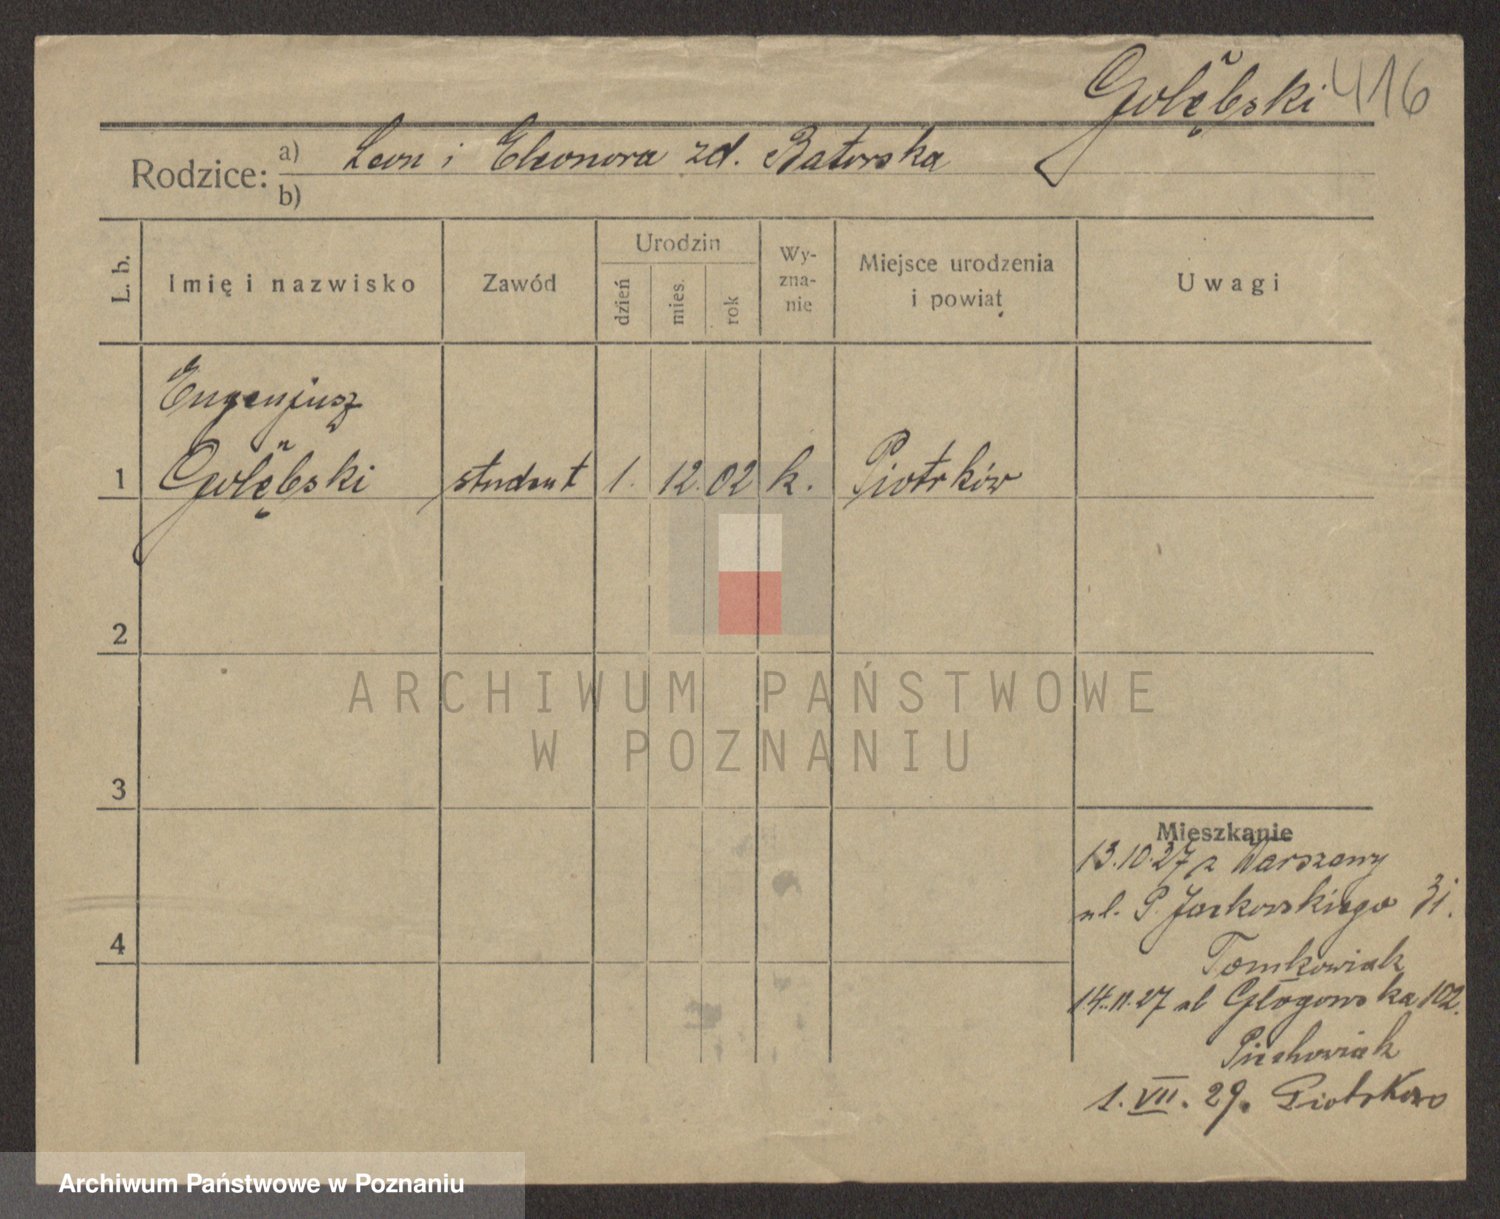 Gołębski 416
Rodzice: a) Leon i Eleonora zd. Batorska
b)
L. b.
Imię i nazwisko
Zawód
Urodzin
dzień
mies.
rok
Wy-
zna-
nie
Miejsce urodzenia
i powiat
Uwagi
Eugenjusz
1 Gołębski student 1. 12. 02 k. Piotrków
2
3
4
ARCHIWUM PAŃSTWOWE
W POZNANIU
Mieszkanie
13.10.27 z Warszawy
ul. P. Jackowskiego
Tomkowiak
14.11.27 ul Głogowska 102.
Piechowiak
1. VII. 29. Piotrków
Archiwum Państwowe w Poznaniu